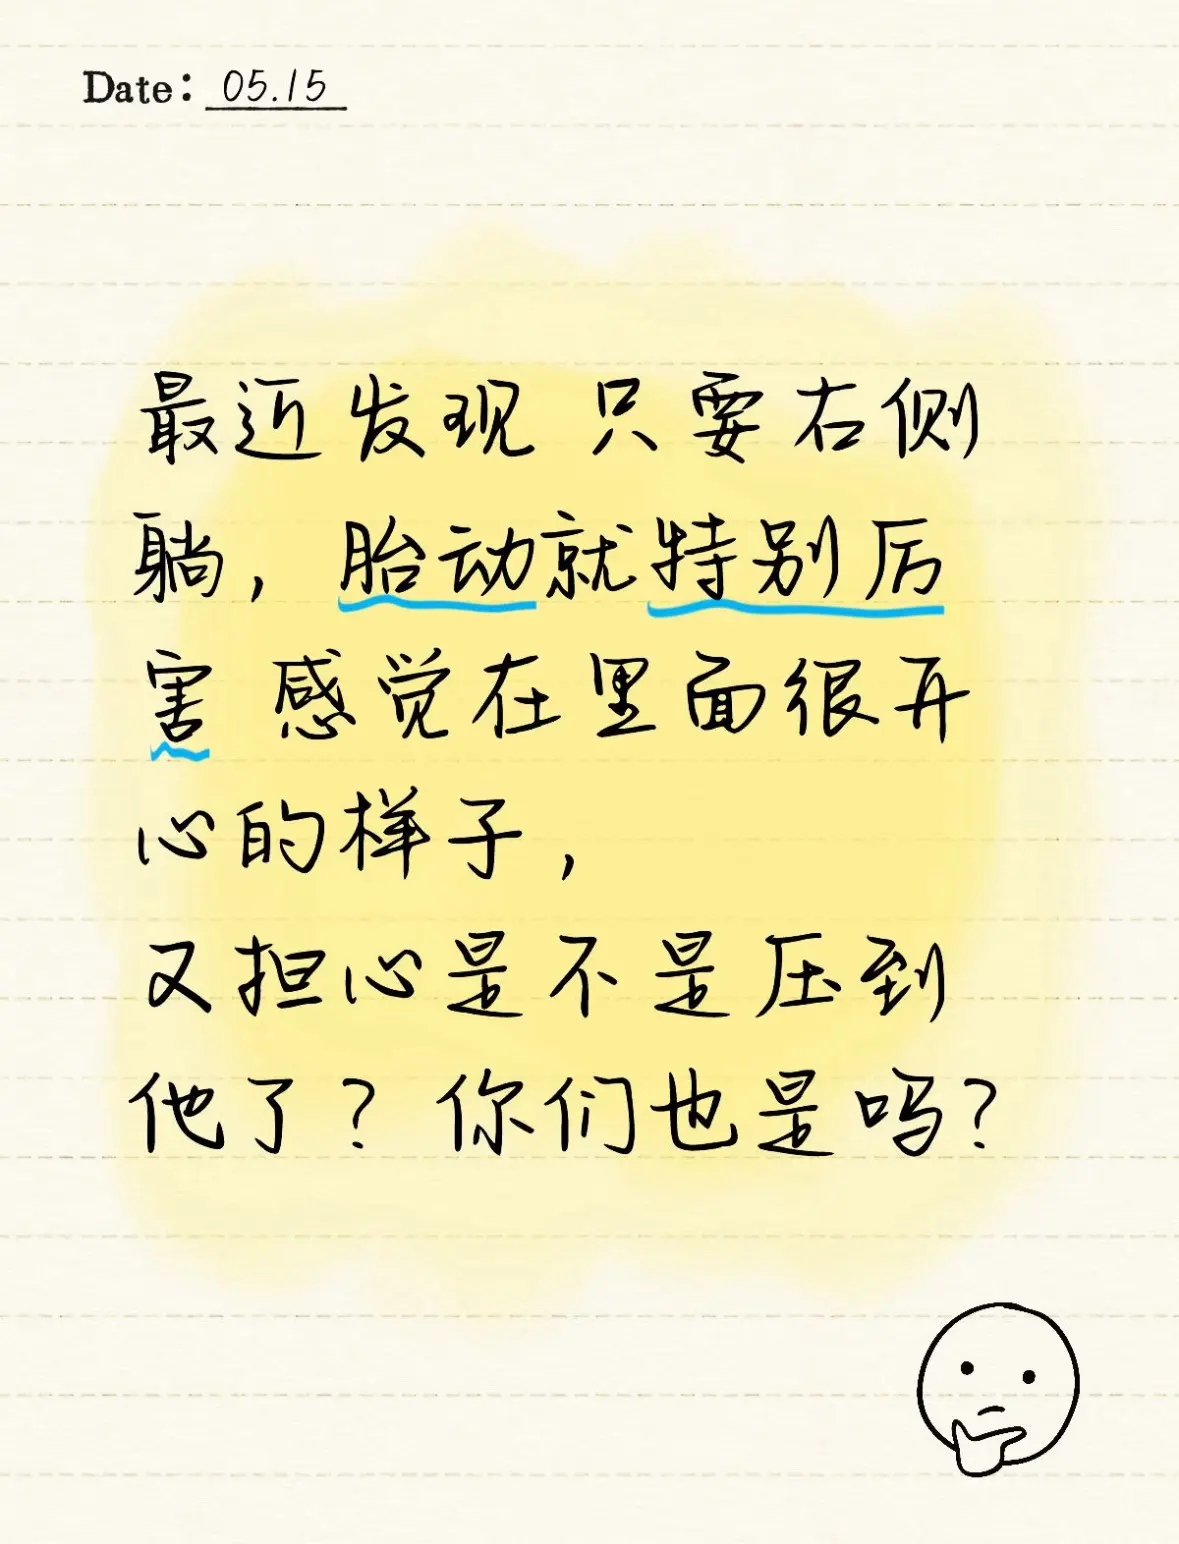 Date: 05.15
最近发现 只要右侧
躺，胎动就特别厉
害 感觉在里面很开
心的样子，
又担心是不是压到
他了？你们也是吗？